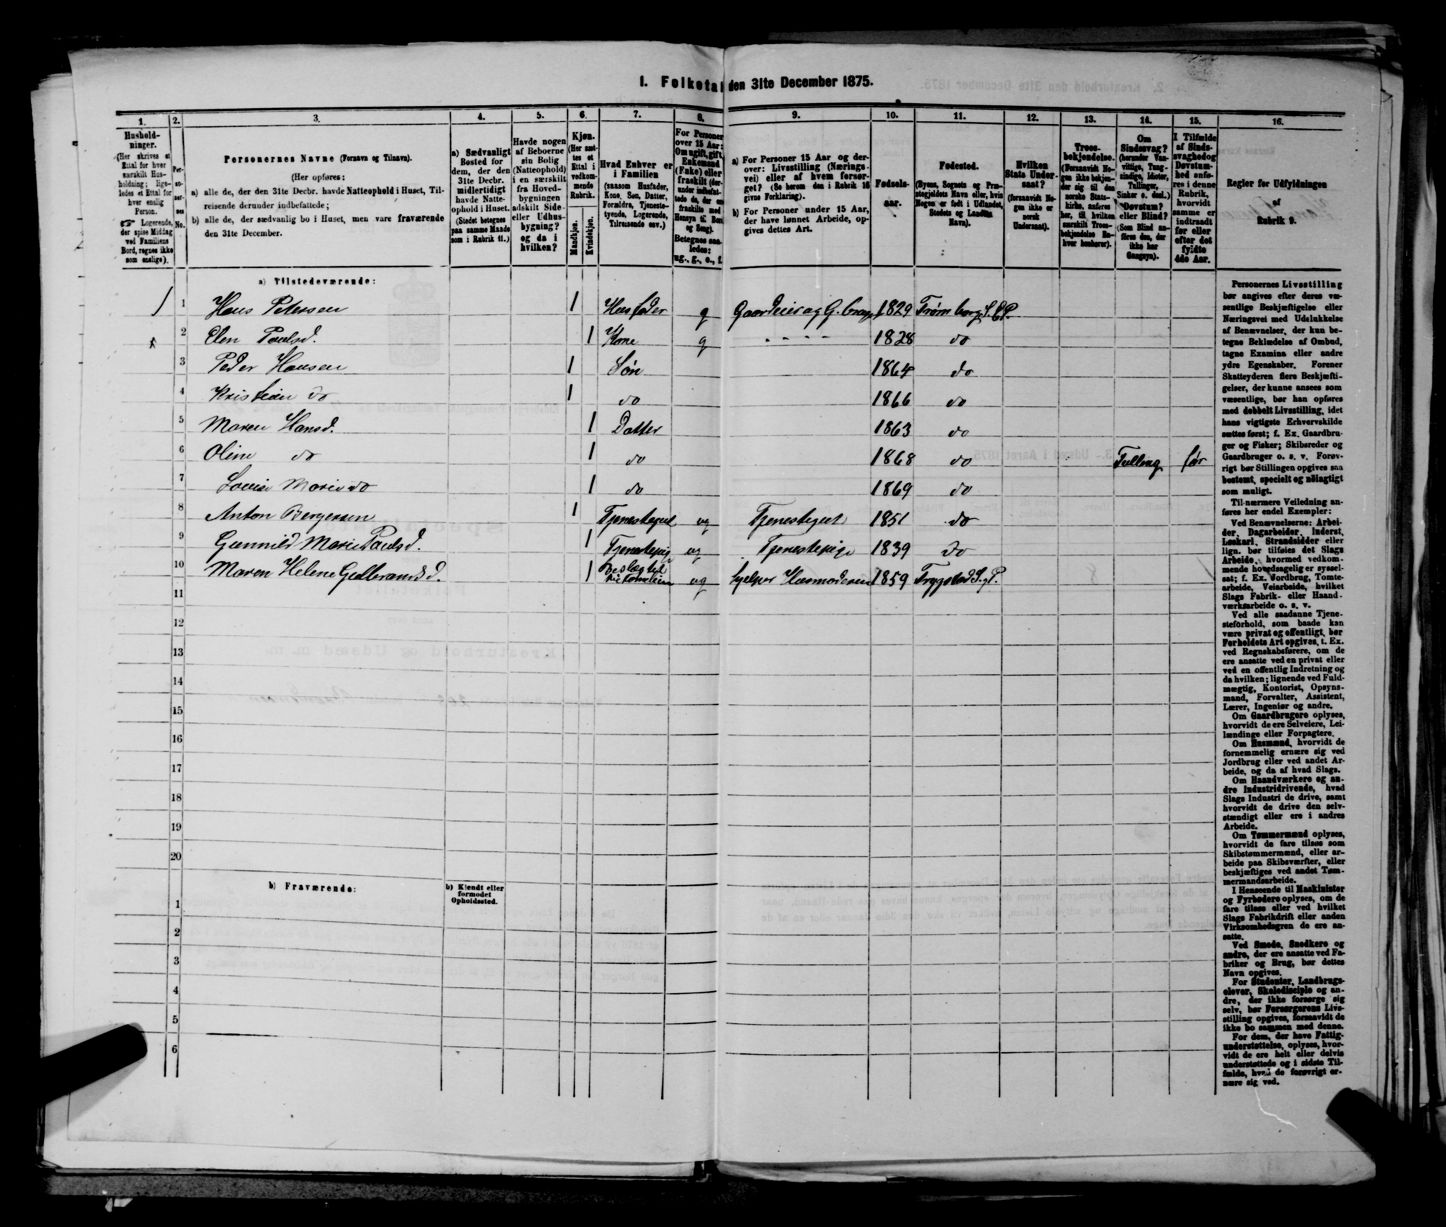 1. Folketal den 31te December 1875.
1. 2. 3. 4. 5. 6. 7. 8. 9. 10. 11. 12. 13. 14. 15. 16.
Hushold-
ninger.
(Her skrives et
Ettal for hver
særskilt Hus-
holdning; lige-
ledes et Ettal for
hver enslig
Person.
Logerende,
der spise Middag
ved Familiens
Bord, regnes ikke
som enslige).
Per-
so-
ner-
nes
No.
Personernes Navne (Fornavn og Tilnavn).
(Her opføres:
a) alle de, der den 31te Decbr. havde Natteophold i Huset, Til-
reisende derunder indbefattede;
b) alle de, der sædvanlig bo i Huset, men vare fraværende
den 31te December.
a) Sædvanligt
Bosted for
dem, der den
31te Decbr.
midlertidigt
havde Natte-
ophold i Huset.
(Stedet betegnes
paa samme Maade
som i Rubrik 11.)
Havde nogen
af Beboerne
sin Bolig
(Natteophold)
i en særskilt
fra Hoved-
bygningen
adskilt Side-
eller Udhus-
bygning?
og da i
hvilken?
Kjøn.
(Her sæt-
tes et
Ettal i
vedkom-
mende
Rubrik.
Mandkjøn.
Kvindekjøn.
Hvad Enhver er
i Familien
(saasom Husfader,
Kone, Søn, Datter,
Forældre, Tjeneste-
tyende, Logerende,
Tilreisende osv.)
For Personer
over 15 Aar:
Om ugift, gift,
Enkemand
(Enke) eller
fraskilt
Betegnes saa-
ledes:
ug., g., e., f.
a) For Personer 15 Aar og der-
over: Livsstilling (Nærings-
vei) eller af hvem forsør-
get? (Se herom den i Rubrik 16
givne Forklaring).
b) For Personer under 15 Aar,
der have lønnet Arbeide, op-
gives dettes Art.
Fødsels-
aar.
Fødested.
(Byens, Sognets og Præ-
stegjeldets Navn eller, hvis
Nogen er født i Udlandet,
Stedets og Landets
Navn).
Hvilken
Stats Under-
saat?
(forsaavidt No-
gen ikke er
norsk
Undersaat).
Troes-
bekjendelse.
(Forsaavidt No-
gen ikke bekjen-
der sig til den
norske Stats-
kirke, anføres
her, til hvilken
særskilt Troes-
bekjendelse En-
hver henhører).
Om
Sindssvag?
(herunder Van-
vittige, Tung-
sindige, Idioter,
Tullinger,
Sinker o. desl.)
Døvstum?
eller Blind?
(Som Blind an-
føres den, der
ikke har
Gangsyn).
I Tilfælde
af Sinds-
svaghed og
Døvstum-
hed anfø-
res i denne
Rubrik,
hvorvidt
samme er
indtraadt
før eller
efter det
fyldte
4de Aar.
Regler for Udfyldningen
af
Rubrik 9.
a) Tilstedeværende:
1 Hans Petersen 1 Husfader g Gaardeier og G. brug. 1829 Trømborg S. EP.
2 Elen Paulsd. 1 Kone g - - - - 1828 do
3 Peder Hansen 1 Søn 1864 do
4 Kristian do 1 do 1866 do
5 Maren Hansd. 1 Datter 1863 do
6 Oline do 1 do 1868 do Tulling før
7 Lovise Marie do 1 do 1869 do
8 Anton Bergersen 1 Tjenestegut ug Tjenestegut 1851 do
9 Gunnild Marie Paulsd. 1 Tjenestepige ug Tjenestepige 1839 do
10 Maren Helene Gulbrandsd. 1 Beslægtet ug hjelper Husmoderen 1859 Trygstad S. og P.
11
12
13
14
15
16
17
18
19
20
b) Fraværende: b) Kjendt eller
formodet
Opholdssted.
1
2
3
4
5
6
Personernes Livsstilling
bør angives efter deres væ-
sentlige Beskjæftigelse eller
Næringsvei med Udelukkelse
af Benævnelser, der kun be-
tegne Beklædelse af Ombud,
tagne Examina eller andre
ydre Egenskaber. Forener
Skatteyderen flere Beskjæfti-
gelser, der kunne ansees som
væsentlige, bør han opføres
med dobbelt Livsstilling, idet
hans vigtigste Erhvervskilde
sættes først; f. Ex. Gaardbru-
ger og Fisker; Skibsreder og
Gaardbruger o. s. v. Forøv-
rigt bør Stillingen opgives saa
bestemt, specielt og nøiagtigt
som muligt.
Til nærmere Veiledning an-
føres her endel Exempler:
Ved Benævnelserne: Arbei-
der, Dagarbeider, Inderst,
Løskarl, Strandsidder eller
lign. bør tilføies det Slags
Arbeide, hvormed vedkom-
mende hovedsagelig er syssel-
sat; f. Ex. Jordbrug, Tomte-
arbeide, Veiarbeide, hvilket
Slags Fabrik- eller Haand-
værksarbeide o. s. v.
Ved alle saadanne Tjene-
steforhold, som baade kan
være privat og offentligt, bør
Forholdets Art opgives, t. Ex.
ved Regnskabsførere, om de
ere ansatte ved en privat eller
ved en offentlig Indretning og
da hvilken; lignende ved Fuld-
mægtig, Kontorist, Opsyns-
mand, Forvalter, Assistent,
Lærer, Ingeniør og andre.
Om Gaardbrugere oplyses,
hvorvidt de ere Selveiere, Lei-
lændinge eller Forpagtere.
Om Husmænd, hvorvidt de
fornemmelig ernære sig ved
Jordbrug eller ved andet Ar-
beide, og da af hvad Slags.
Om Haandværkere og an-
dre Industridrivende, hvad
Slags Industri de drive, samt
hvorvidt de drive den selv-
stændigt eller ere i andres
Arbeide.
Om Tømmermænd oplyses,
hvorvidt de fare tilsøs som
Skibstømmermænd, eller ar-
beide paa Skibsværfter, eller
beskjæftiges ved andet Tøm-
mermandsarbeide.
I Henseende til Maskinister
og Fyrbødere oplyses, om de
fare tilsøs eller ved hvilket
Slags Fabrikdrift eller anden
Virksomhedsgren de ere an-
satte.
Ved Smede, Snedkere og
andre, der ere ansatte ved Fa-
briker og Brug, bør dettes
Navn opgives.
For Studenter, Landbrugs-
elever, Skoledisciple og an-
dre, der ikke forsørge sig
selv, bør Forsørgerens Livs-
stilling opgives, forsaavidt de
ikke bo sammen med denne.
For dem, der have Fattig-
understøttelse, oplyses, hvor-
vidt de ere helt eller delvis
understøttede og i sidste Til-
fælde, hvad de forøvrigt er-
nære sig ved.